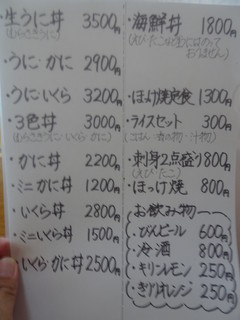 ・生うに丼 3500円
(むらさきうに)
・うに・かに 2900円
・うに・いくら 3200円
・3色丼 3000円
(むらさきうに・かに・いくら)
・かに丼 2200円
・ミニかに丼 1200円
・いくら丼 2800円
・ミニいくら丼 1500円
・いくら・かに丼 2500円
・海鮮丼 1800円
・ほっけ焼定食 1300円
・ライスセット 300円
(ごはん・香の物・汁物)
・刺身2点盛り 800円
(えび・たこ)
・ほっけ焼 800円
・お飲み物・
・びんビール 600円
・冷酒 800円
・キリンレモン 250円
・きりりオレンジ 250円